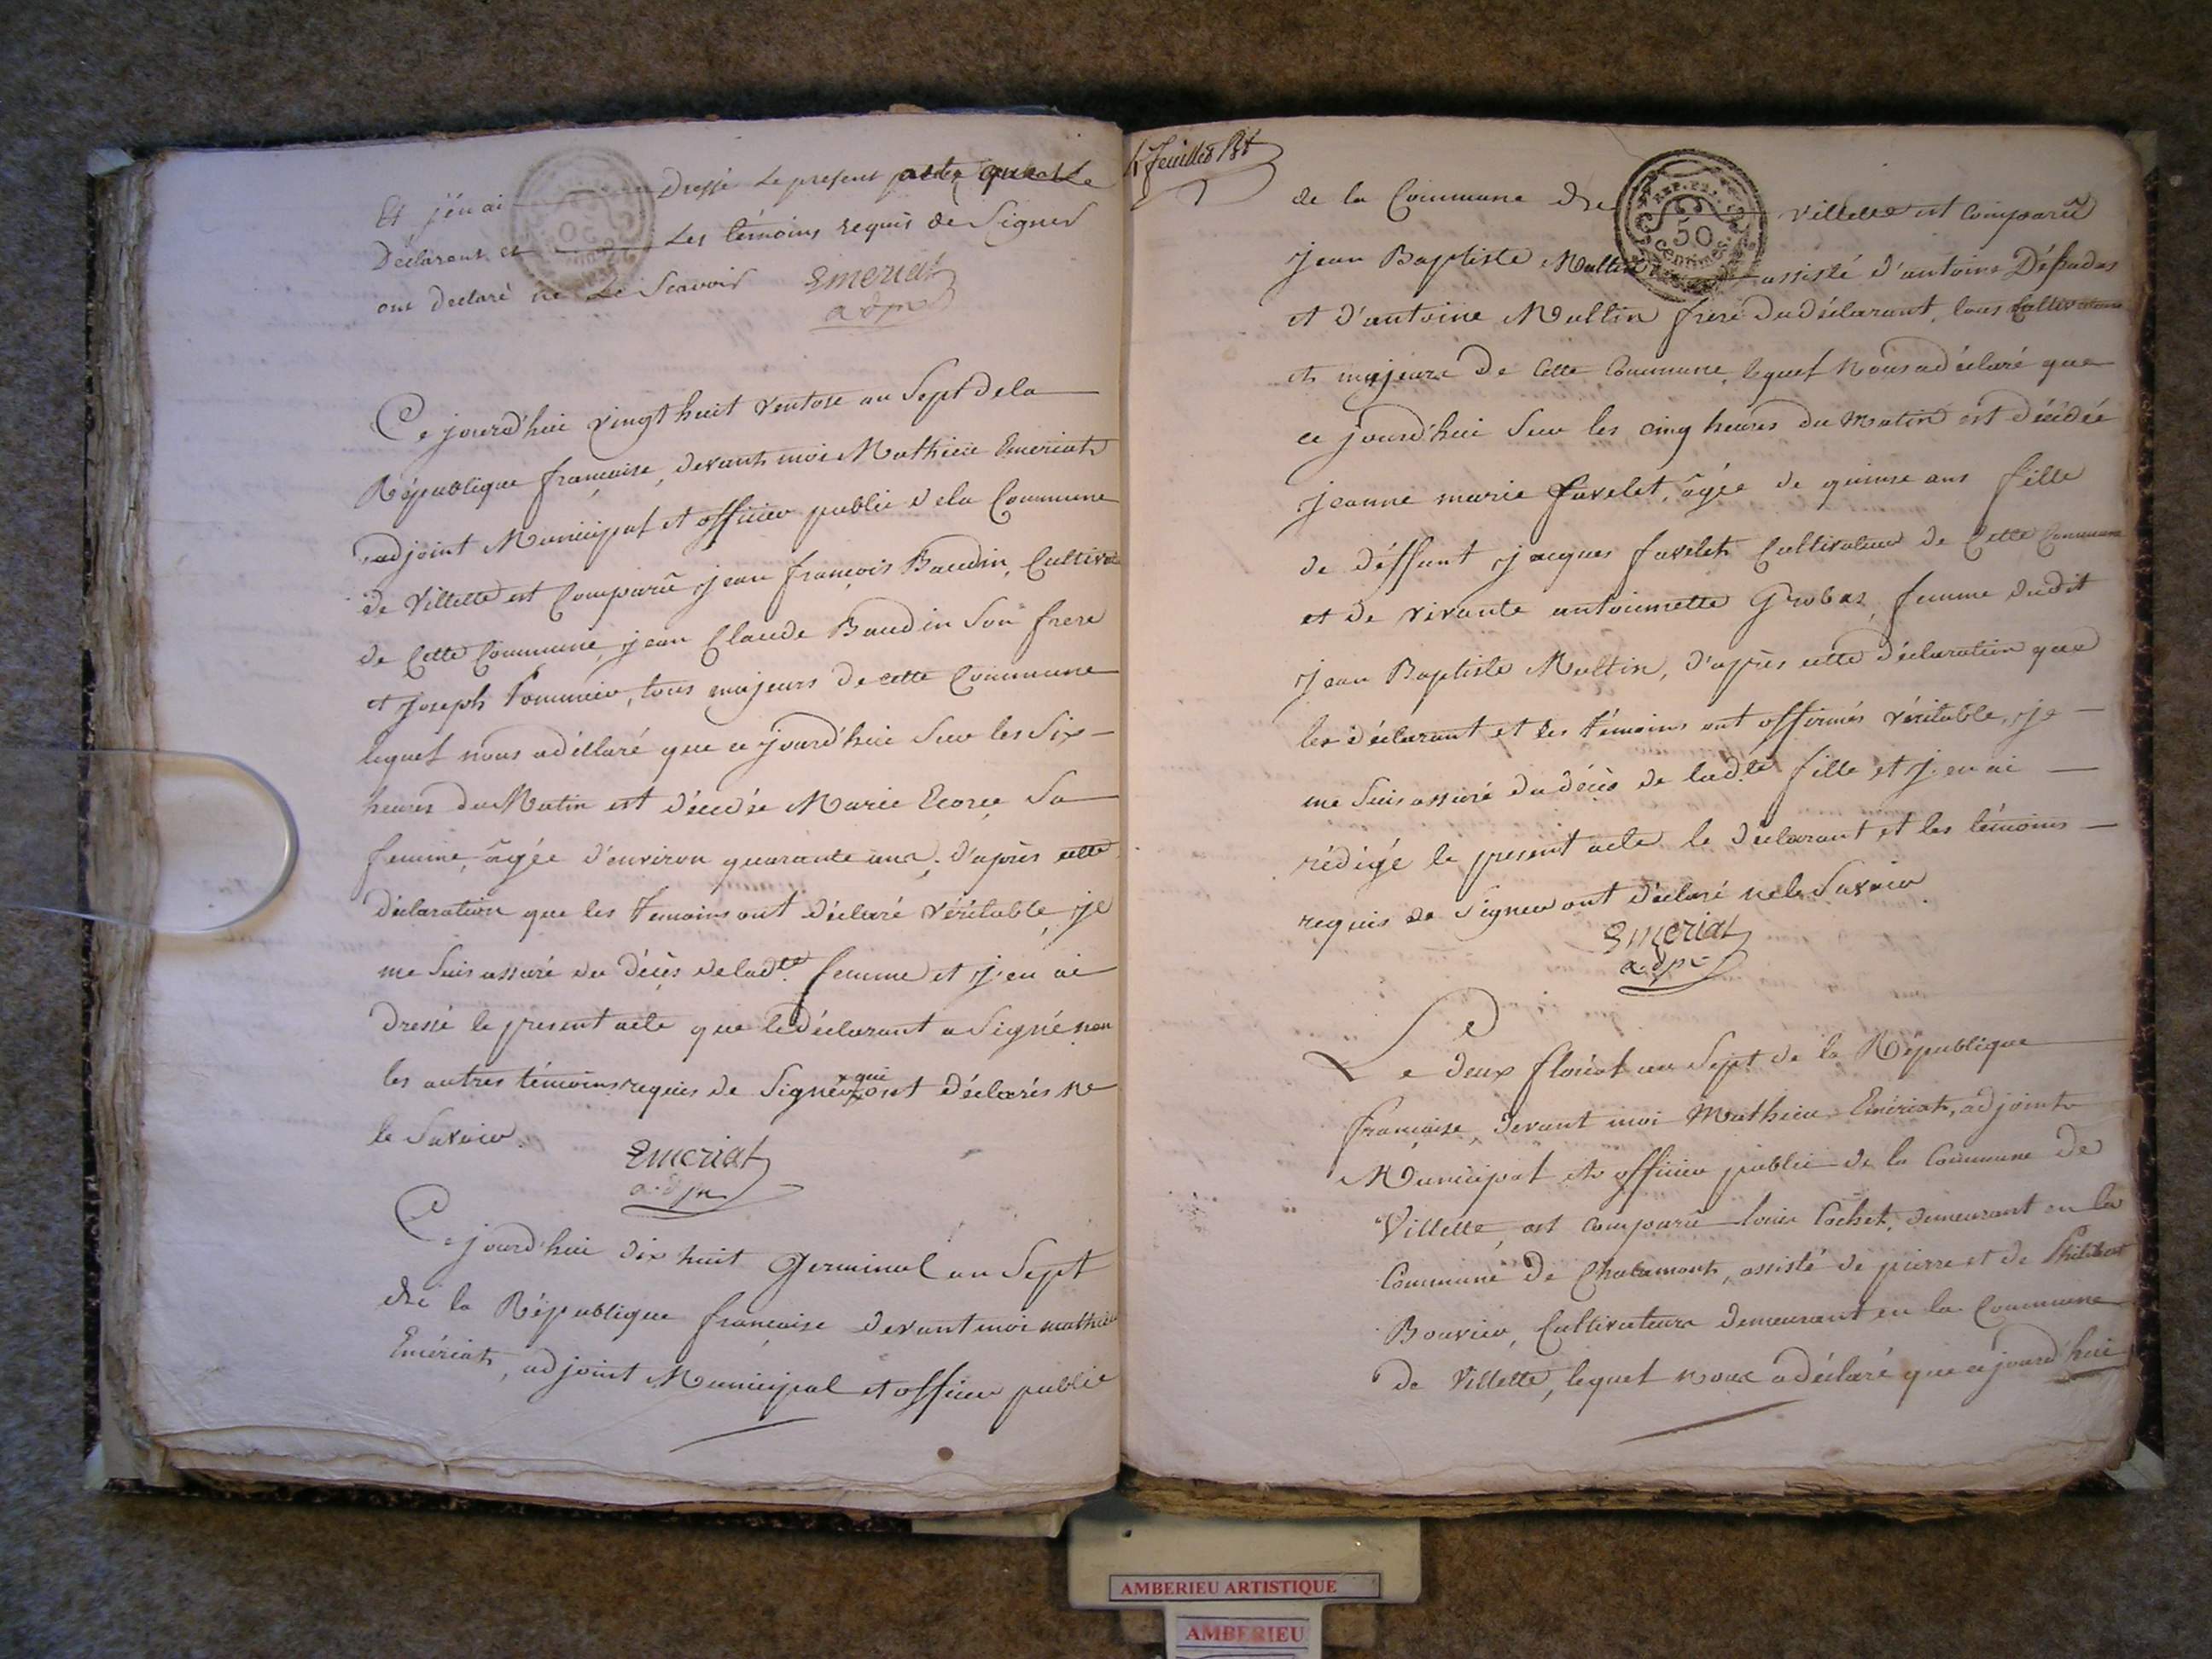 Et j'en ai dressé le present acte que le
Declarant et Les témoins requis de Signer
ont declaré ne Le Scavoir Emeriat
adpt
Ce jourd'hui vingt huit ventose an Sept de la
République française, devant moi Mathieu Emeriat
adjoint Municipal et officier public de la Commune
de Villette est Comparû jean françois Baudin, Cultivat
de Cette Commune, jean Claude Baudin Son frere
et joseph Pommier, tous majeurs de cette Commune
lequel nous a déclaré que ce jourd'hui Sur les Six
heures du Matin est décédée Marie Ecorse Sa
femme, âgée d'environ quarante ans, d'après cette
déclaration que les temoins ont déclaré véritable, je
me suis assuré du décès de ladte femme et j'en ai
dressé le present acte que le déclarant a Signé non
les autres témoins requis de Signer qui ont déclarés ne
le Savoir.
Emeriat
adpt
Ce jourd'hui dix huit Germinal an Sept
de la République française devant moi mathieu
Emériat, adjoint Municipal et officier public
feuilles
de la Commune de Villette est Comparû
REP. FRA.
50
Centimes.
jean Baptiste Multin assisté d'antoine Déspadas
et d'antoine Multin frere du déclarant, tous Cultivateurs
et majeurs de Cette Commune, lequel Nous a déclaré que
ce jourd'hui Sur les cinq heures du Matin est décédée
jeanne marie favelet, âgée de quinze ans fille
de déffunt jacques favelet Cultivateur de Cette Commune
et de vivante antoinette Grobas, femme dudit
jean Baptiste Multin, d'après cette déclaration que
les déclarant et les témoins ont affirmés véritable, je
me Suis assuré du décès de ladte fille et j'en ai
rédigé le present acte le déclarant et les témoins
requis de Signer ont déclaré ne le Savoir
Emeriat
adpt
Le deux floréal an Sept de la République
française, devant moi Mathieu Emériat, adjoint
Municipal et officier public de la Commune de
Villette, est comparû louis Cochet, demeurant en la
Commune de Chalamont, assisté de pierre et de Philibert
Bouvier, Cultivateurs demeurant en la Commune
de Villette, lequel nous a déclaré que ce jourd'hui
AMBERIEU ARTISTIQUE
AMBERIEU